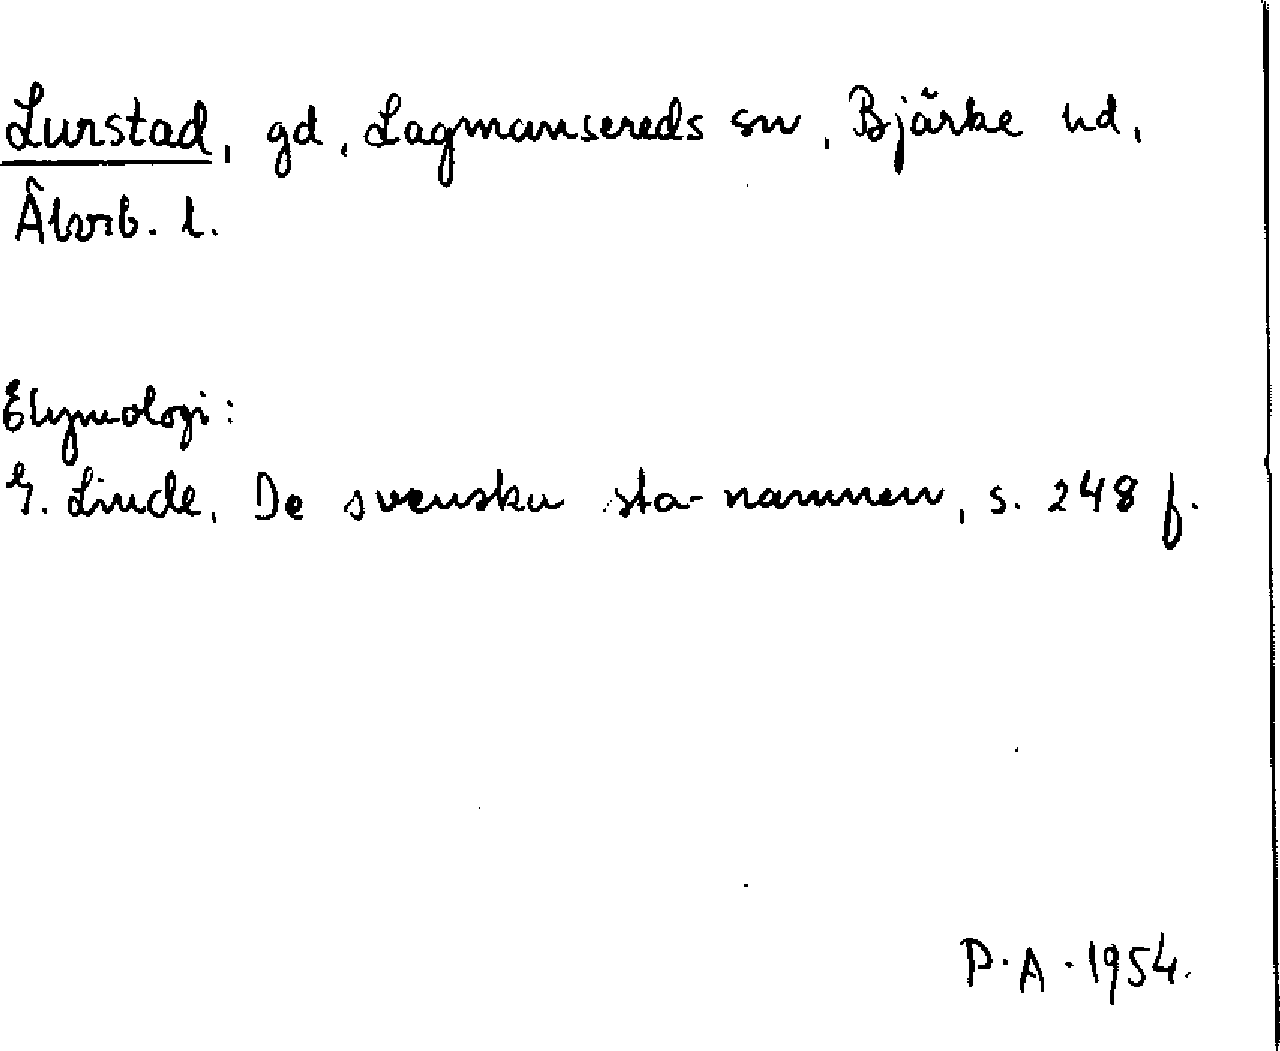 Lurstad, gd, Lagmansereds sn, Bjärke hd,
Älvsb. l.
Etymologi:
G. Linde, De svenska sta-namnen, s. 248 f.
P. A. 1954.